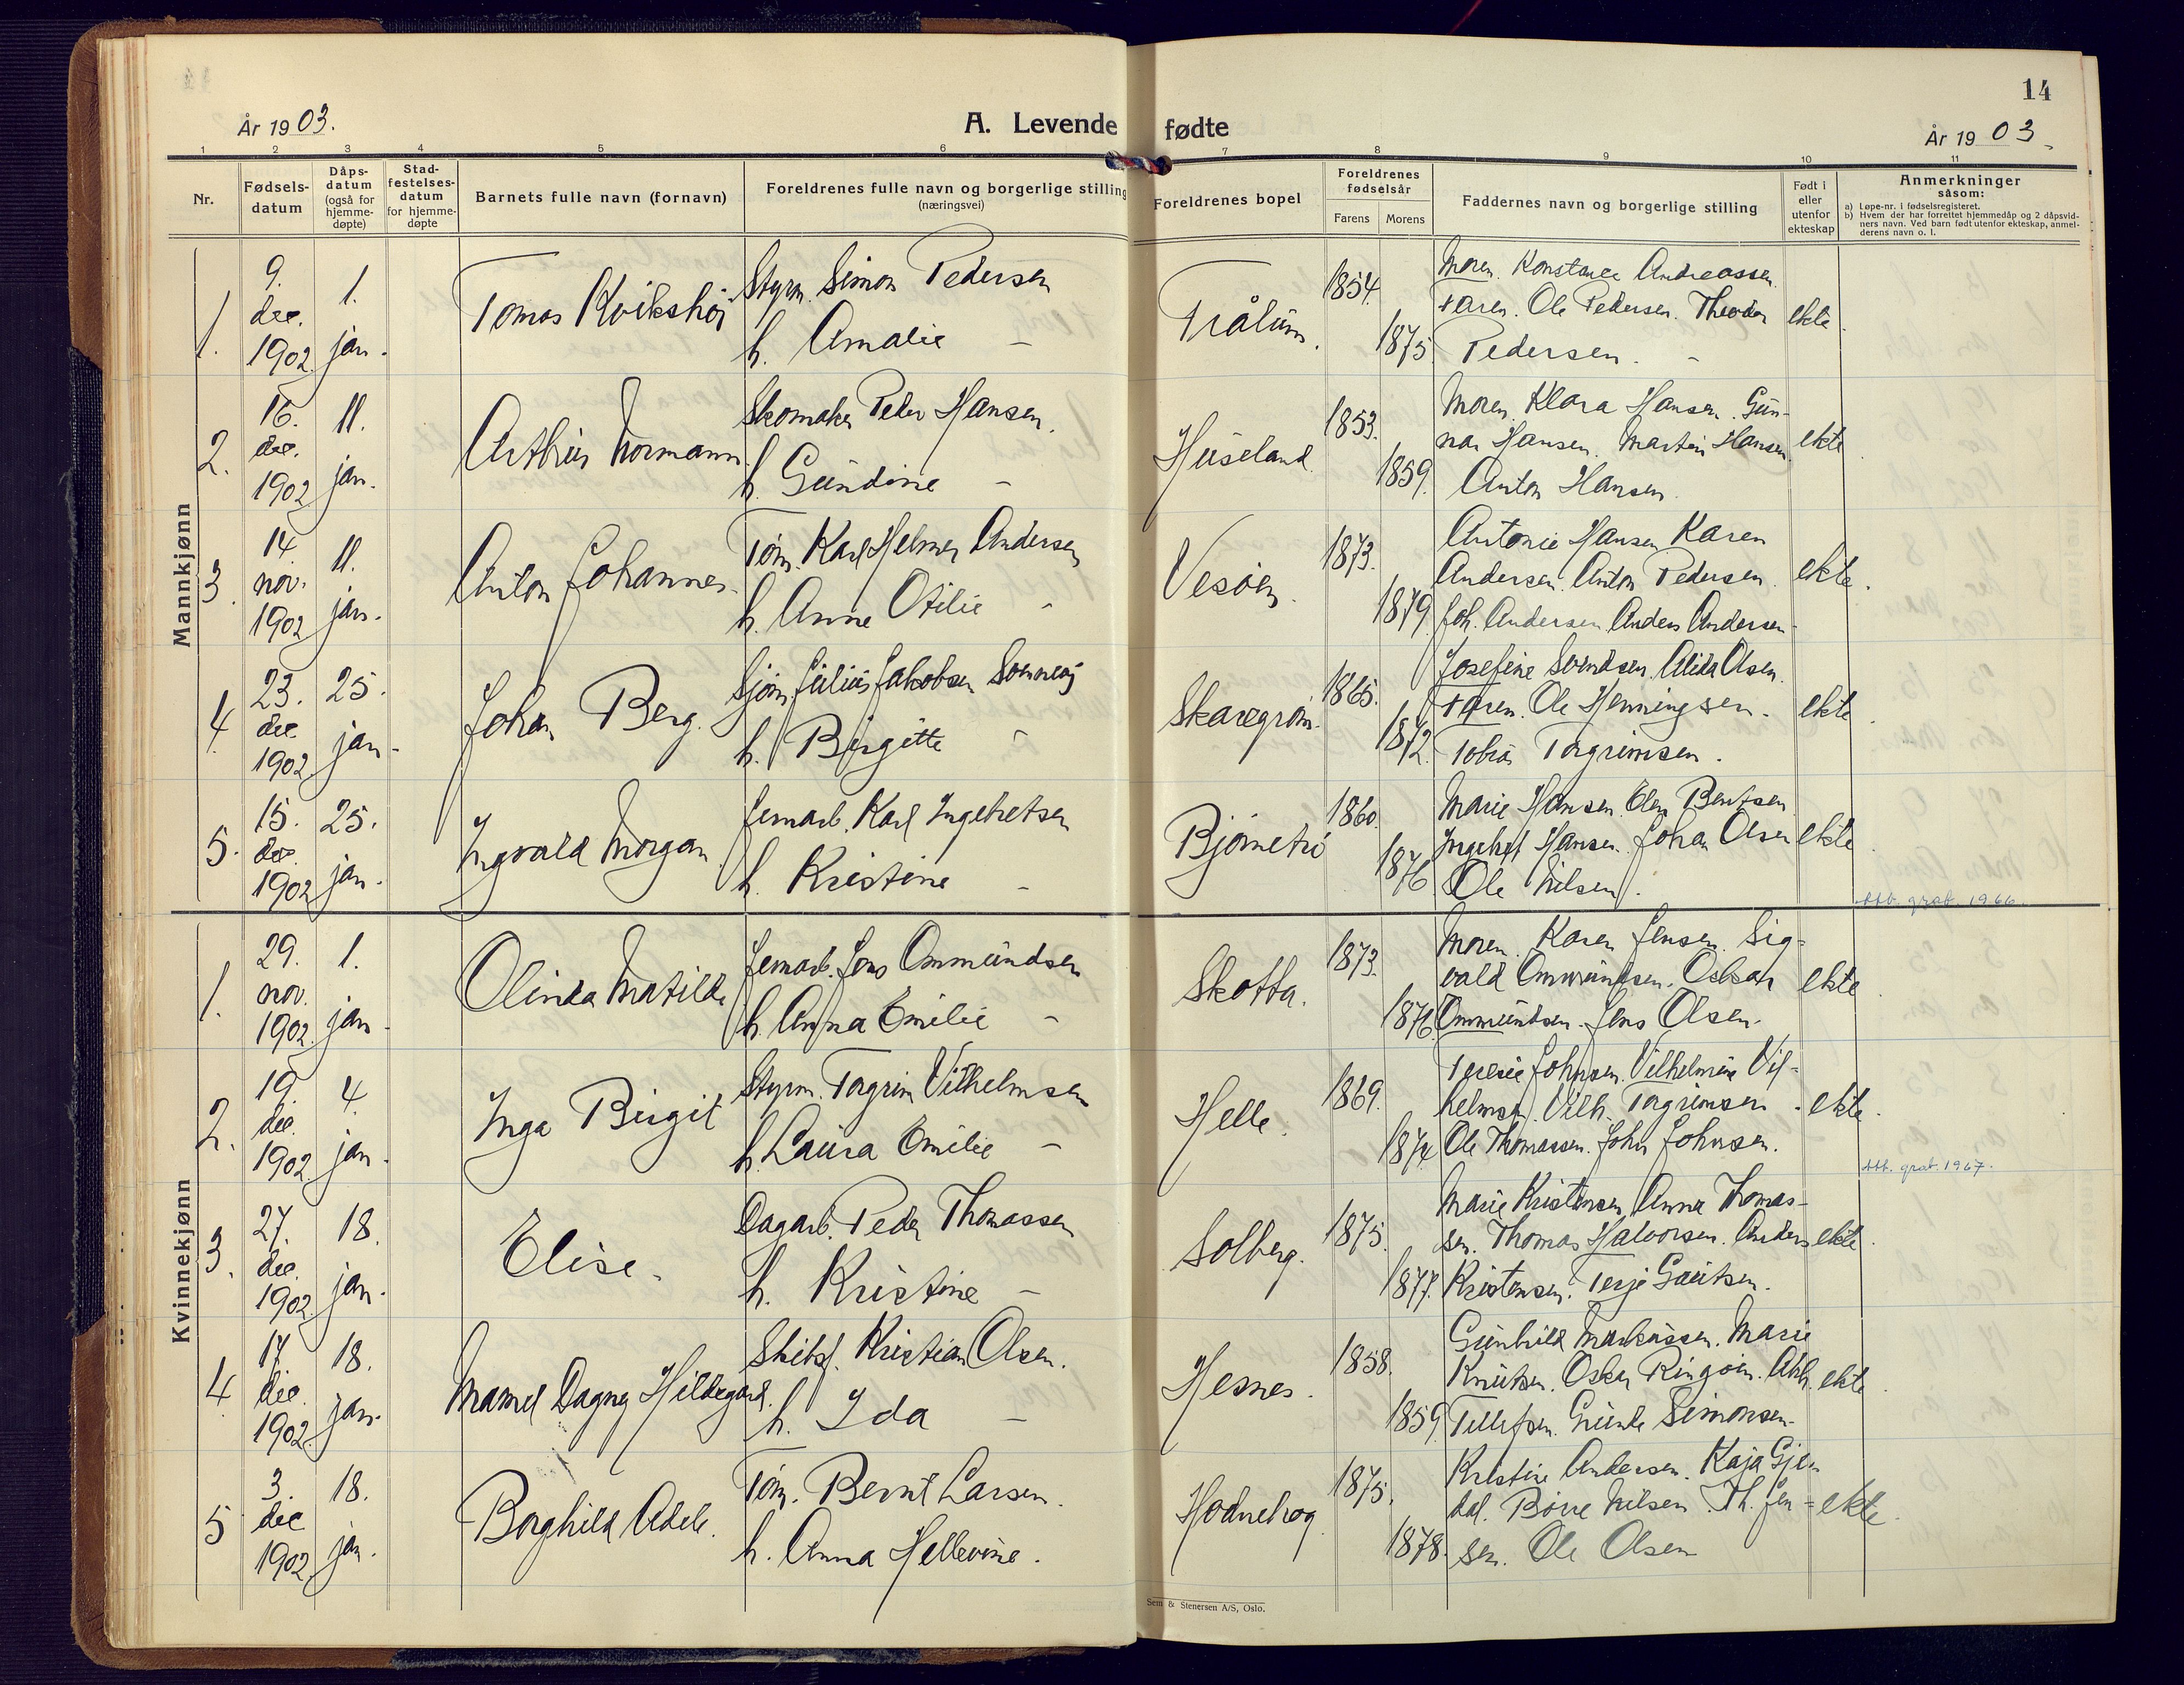 14
År 1903.
A. Levende fødte
År 1903
1 2 3 4 5 6 7 8 9 10 11
Nr.
Fødsels-
datum
Dåps-
datum
(også for
hjemme-
døpte)
Stad-
festelses-
datum
for hjemme-
døpte
Barnets fulle navn (fornavn)
Foreldrenes fulle navn og borgerlige stilling
(næringsvei)
Foreldrenes bopel
Foreldrenes
fødselsår
Farens Morens
Faddernes navn og borgerlige stilling
Født i
eller
utenfor
ekteskap
Anmerkninger
såsom:
a) Løpe-nr. i fødselsregisteret.
b) Hvem der har forrettet hjemmedåp og 2 dåpsvid-
ners navn. Ved barn født utenfor ekteskap, anmel-
derens navn o. l.
Mannkjønn
1.
9.
dec.
1902
1.
jan.
Tomas Kvikshøj
Styrm. Simon Pedersen
h. Amalie -
Trålum.
1854.
1875
Moren. Konstance Andreassen.
Faren. Ole Pedersen. Theodor
Pedersen. -
ekte
2.
16.
dec.
1902
11.
jan.
Arthur Normann.
Skomaker Peder Hansen.
h. Gundine -
Huseland.
1853.
1859.
Moren. Klara Hansen. Gun-
nar Hansen. Martin Hansen.
Anton Hansen.
ekte
3.
14
nov.
1902
11.
jan.
Anton Johannes.
Tøm. Karl Helmer Andersen
h. Anne Otilie -
Vesøen.
1873.
1879.
Antonie Hansen Karen
Andersen. Anton Pedersen.
Joh. Andersen Anders Andersen
ekte.
4.
23.
dec.
1902
25.
jan.
Johan Berg.
Sjøm. Julius Jakobsen
h. Birgitte
1865.
1872.
Josefine Svendsen. Alida Olsen.
Faren. Ole Henningsen.
Tobias Torgrimsen.
ekte
5.
15.
dec.
1902
25.
jan.
Ingvald Morgan.
Jernarb. Karl Ingebretsen
h. Kristine -
Bjørnetrø
1860.
1876
Marie Hansen. Elen Bentsen
Ingebret Hansen. Johan Olsen
Ole Nilsen.
ekte
att. grat. 1966.
Kvinnekjønn
1.
29.
nov.
1902.
1.
jan.
Olinda Matilde
Jernarb. Jens Ommundsen
h. Anna Emilie -
Skotta.
1873.
1876.
Moren. Karen Jensen. Sig-
vald Ommundsen. Oskar
Ommundsen. Jens Olsen.
ekte
2.
19.
dec.
1902
4.
jan.
Inga Birgit
Styrm. Torgrim Vilhelmsen
h. Laura Emilie -
Helle.
1869.
1874
Terese Johnsen. Vilhelmine Vil-
helmsen. Vilh. Torgrimsen.
Ole Thomassen. John Johnsen.
ekte.
att. grat. 1967.
3.
27.
dec.
1902
18.
jan.
Elise.
Dagarb. Peder Thomassen
h. Kristine -
Solberg.
1875.
1877.
Marie Kristensen Anna Thomas-
sen. Thomas Halvorsen. Anders
Kristensen. Terje Gautsen.
ekte
4.
17.
dec.
1902.
18.
jan.
Mamel Dagny Hildegard.
Skibsf. Kristian Olsen.
h. Ida -
Hesnes.
1858.
1859
Gunhild Markussen. Marie
Knutsen. Oskar Ringøen. Abh.
Tellefsen. Gunde Simonsen.
ekte
5
3.
dec
1902.
18.
jan.
Borghild Adele.
Tøm. Bernt Larsen.
h. Anna Hellevine.
Hodnebrog
1875.
1878.
Kristine Andersen. Kaja Gjen
dal. Børre Nilsen. Th. Jen-
sen. Ole Olsen
ekte.
Sem & Stenersen A/S, Oslo.